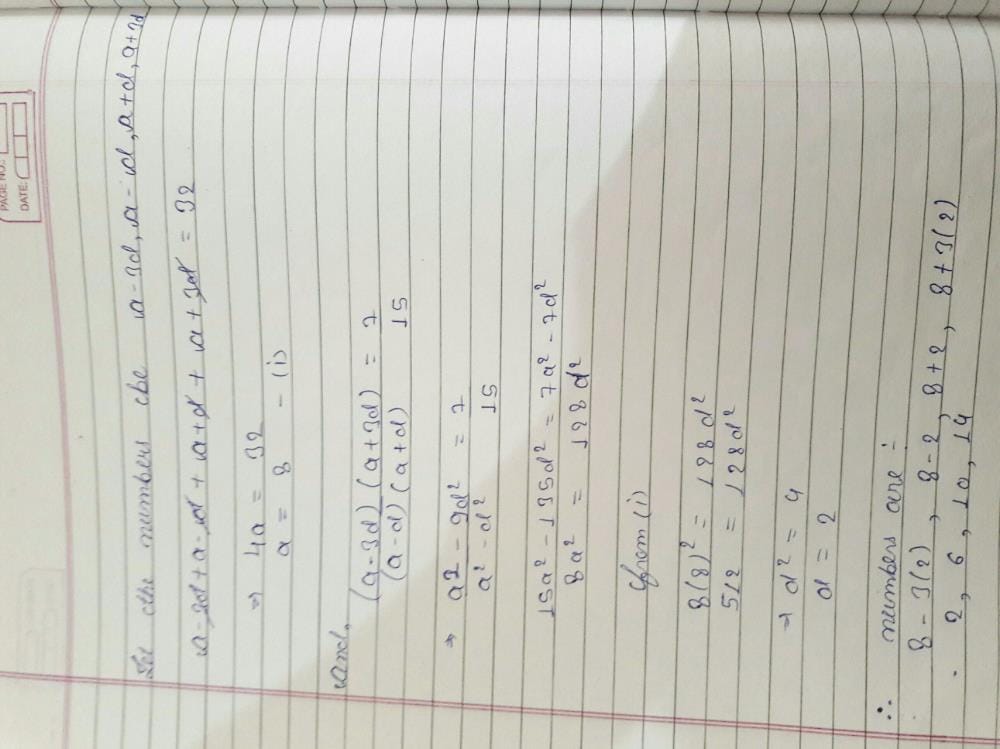 PAGE NO.:
DATE:
Let the numbers be a-3d, a-d, a+d, a+3d
a-3d+a-d+a+d+a+3d = 32
⇒ 4a = 32
a = 8 - (i)
And,
(a-3d)(a+3d) = 7
(a-d)(a+d) 15
⇒ a2 - 9d² = 7
a² - d² 15
15a² - 135d² = 7a² - 7d²
8a² = 128d²
from (i)
8(8)² = 128d²
512 = 128d²
⇒ d² = 4
d = 2
∴ numbers are :-
8-3(2), 8-2, 8+2, 8+3(2)
2, 6, 10, 14